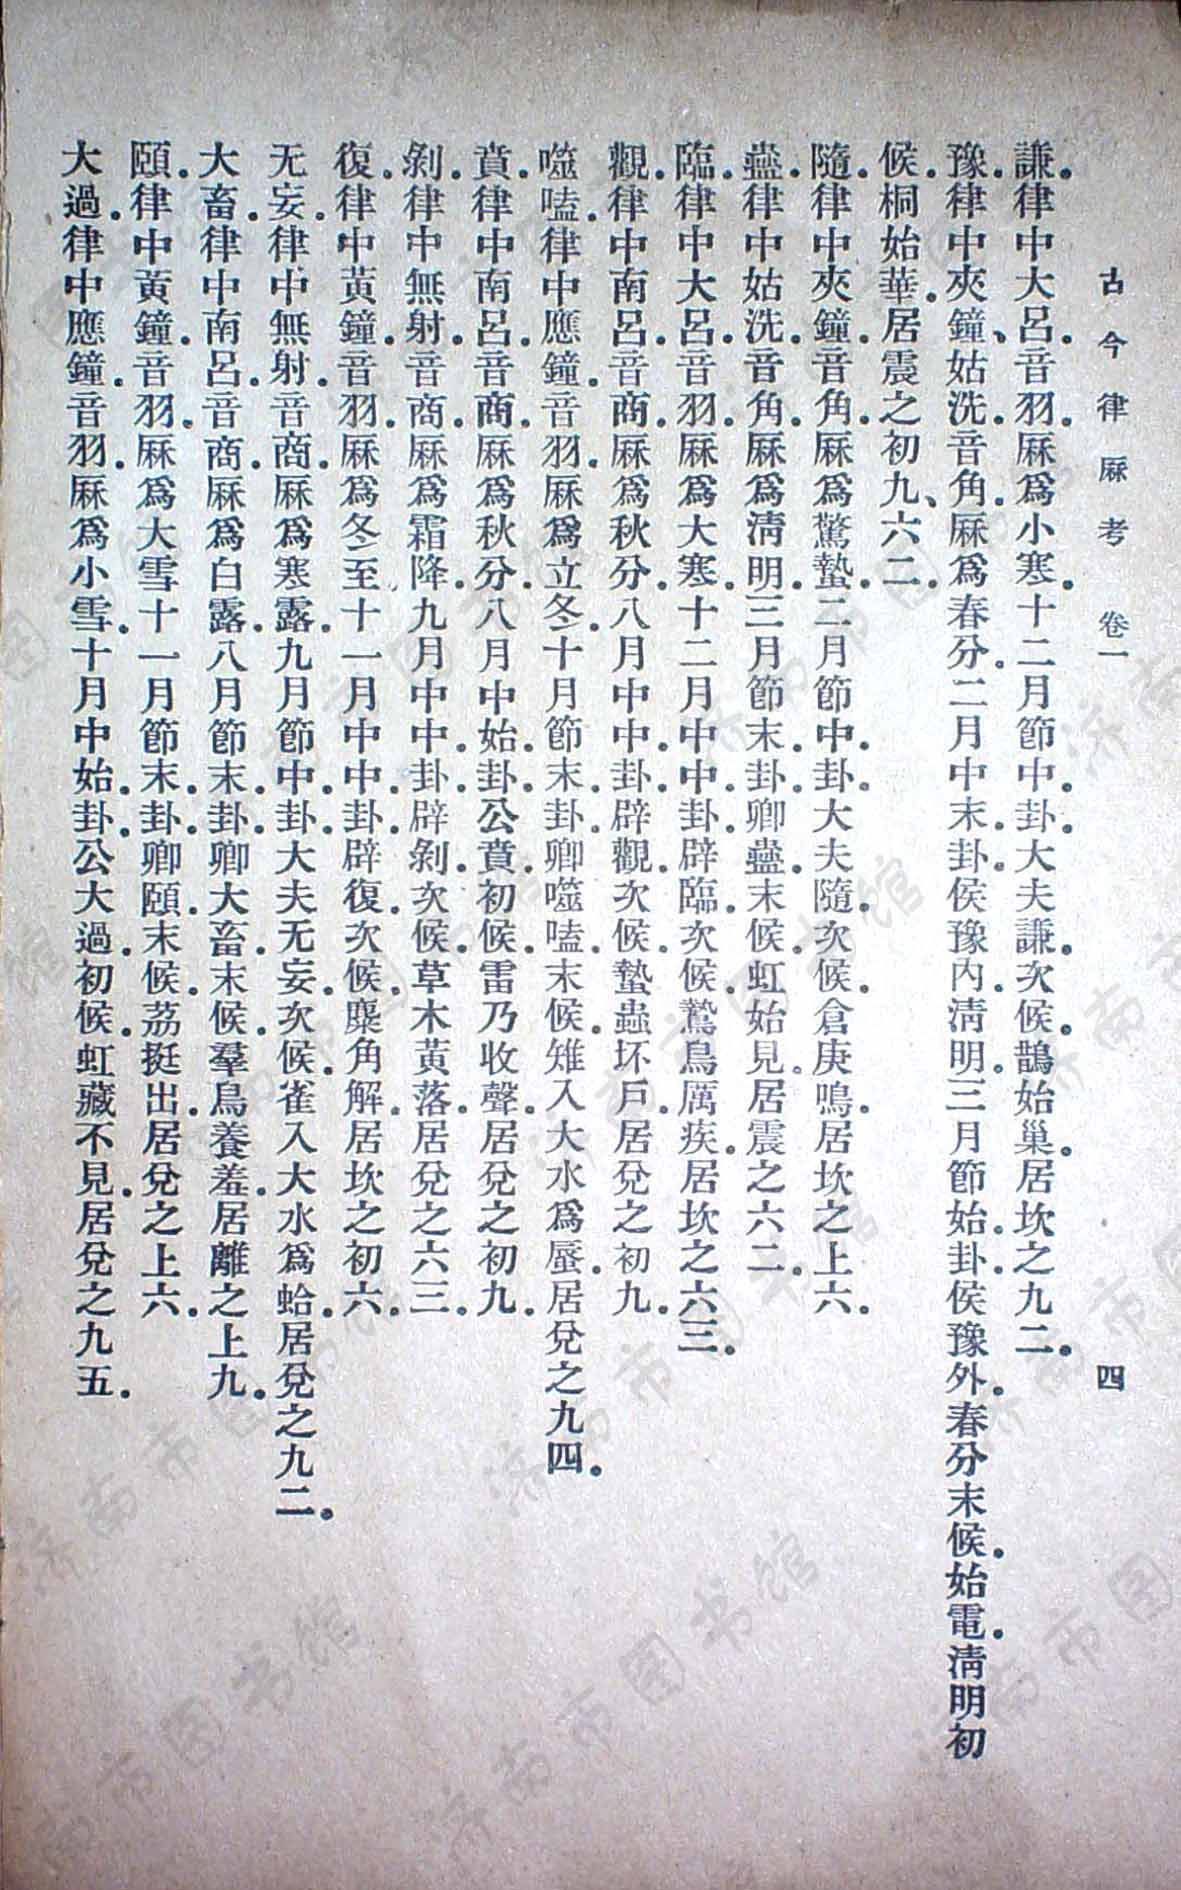 古今律厤考 卷一 四
謙.律中大呂.音羽.厤爲小寒.十二月節中.卦.大夫謙.次候.鵲始巢.居坎之九二.
豫.律中夾鐘、姑洗.音角.厤爲春分.二月中末.卦.侯豫內.淸明.三月節始.卦.侯豫外.春分末候.始電.淸明初
候.桐始華.居震之初九、六二.
隨.律中夾鐘.音角.厤爲驚蟄.二月節中.卦.大夫隨.次候.倉庚鳴.居坎之上六.
蠱.律中姑洗.音角.厤爲淸明.三月節末.卦.卿蠱.末候.虹始見.居震之六二.
臨.律中大呂.音羽.厤爲大寒.十二月中中.卦.辟臨.次候.鷙鳥厲疾.居坎之六三.
觀.律中南呂.音商.厤爲秋分.八月中中.卦.辟觀.次候.蟄蟲坏戶.居兌之初九.
噬嗑.律中應鐘.音羽.厤爲立冬.十月節末.卦.卿噬嗑.末候.雉入大水爲蜃.居兌之九四.
賁.律中南呂.音商.厤爲秋分.八月中始.卦.公賁.初候.雷乃收聲.居兌之初九.
剝.律中無射.音商.厤爲霜降.九月中中.卦.辟剝.次候.草木黃落.居兌之六三.
復.律中黃鐘.音羽.厤爲冬至.十一月中中.卦.辟復.次候.麋角解.居坎之初六.
无妄.律中無射.音商.厤爲寒露.九月節中.卦.大夫无妄.次候.雀入大水爲蛤.居兌之九二.
大畜.律中南呂.音商.厤爲白露.八月節末.卦.卿大畜.末候.羣鳥養羞.居離之上九.
頤.律中黃鐘.音羽.厤爲大雪.十一月節末.卦.卿頤.末候.荔挺出.居兌之上六.
大過.律中應鐘.音羽.厤爲小雪.十月中始.卦.公大過.初候.虹藏不見.居兌之九五.